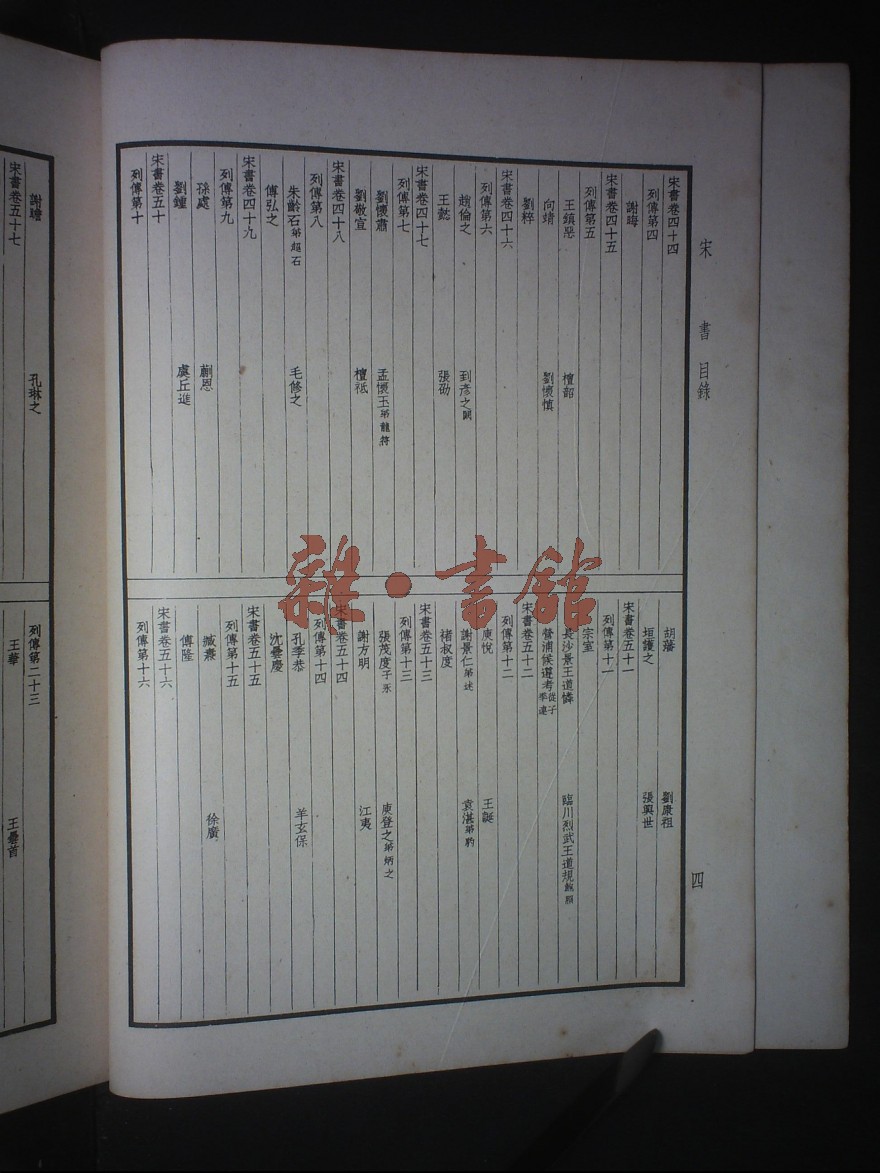 宋書目錄
四
宋書卷四十四
列傳第四
謝晦
宋書卷四十五
列傳第五
王鎮惡 檀韶
向靖 劉懷慎
劉粹
宋書卷四十六
列傳第六
趙倫之 到彥之闕
王懿 張劭
宋書卷四十七
列傳第七
劉懷肅 孟懷玉弟龍符
劉敬宣 檀祗
宋書卷四十八
列傳第八
朱齡石弟超石 毛修之
傅弘之
宋書卷四十九
列傳第九
孫處 蒯恩
劉鍾 虞丘進
宋書卷五十
列傳第十
胡藩 劉康祖
垣護之 張興世
宋書卷五十一
列傳第十一
宗室
長沙景王道憐 臨川烈武王道規鮑照
營浦侯遵考從子季連
宋書卷五十二
列傳第十二
庾悅 王誕
謝景仁弟述 袁湛弟豹
褚叔度
宋書卷五十三
列傳第十三
張茂度子永 庾登之弟炳之
謝方明 江夷
宋書卷五十四
列傳第十四
孔季恭 羊玄保
沈曇慶
宋書卷五十五
列傳第十五
臧燾 徐廣
傅隆
宋書卷五十六
列傳第十六
謝瞻 孔琳之
宋書卷五十七
列傳第二十三
王華 王曇首
雜·書館